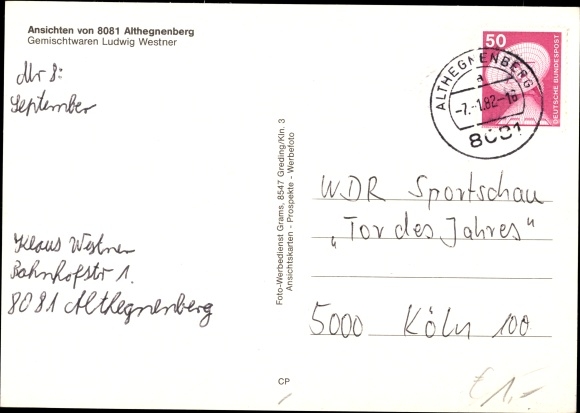 Ansichten von 8081 Althegnenberg
Gemischtwaren Ludwig Westner
Nr 8:
September
Klaus Westner
Bahnhofstr 1.
8081 Althegnenberg
Foto-Werbedienst Grams, 8547 Greding/Kln. 3
Ansichtskarten - Prospekte - Werbefoto
CP
50
DEUTSCHE BUNDESPOST
ALTHEGNENBERG
a
-7.-1.82-16
8081
WDR Sportschau
„Tor des Jahres“
5000 Köln 100
€ 1,-